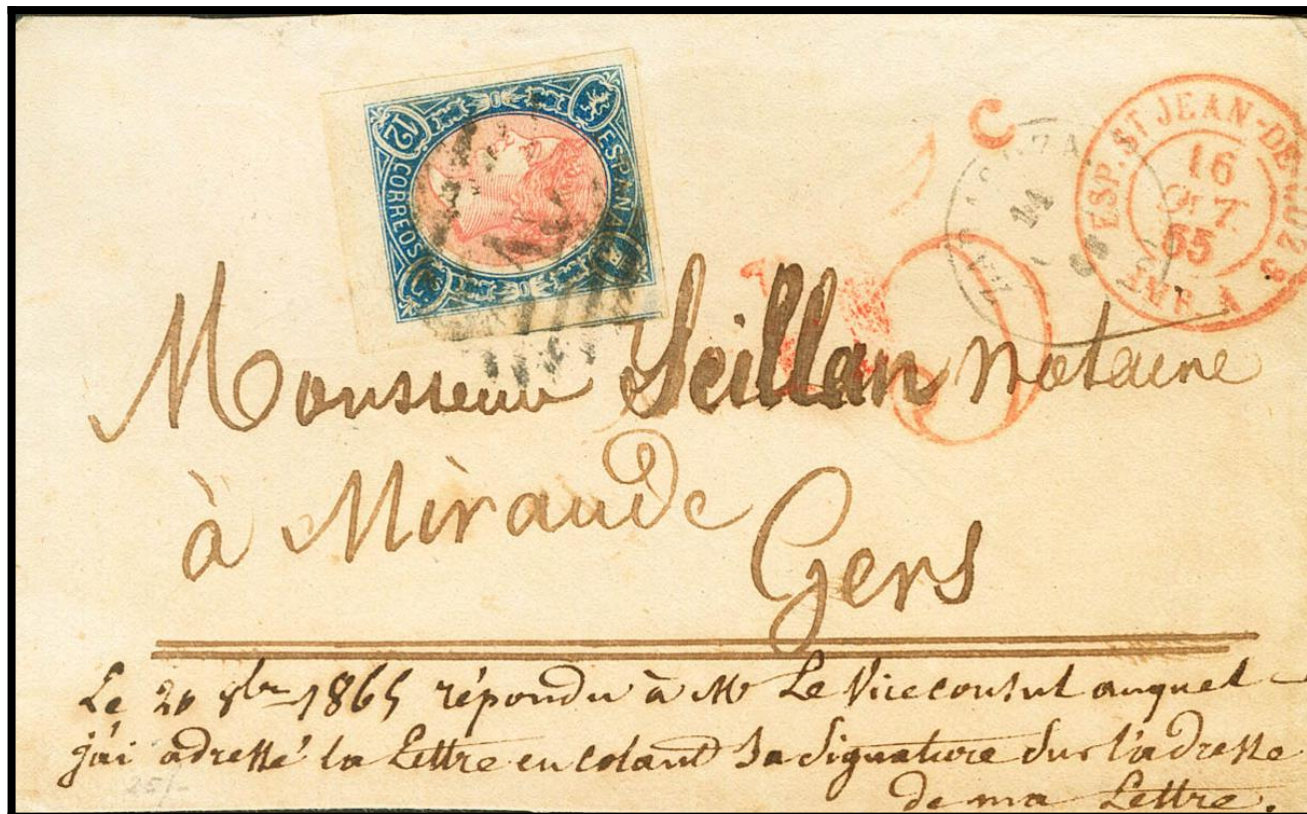 12
CORREOS
ESPAÑA
ESP. ST JEAN-DE-LUZ
16
OCT
65
AMB. A
14
Monsieur Seillan Notaire
à Mirande
Gers
Le 20 8bre 1865 répondu à Mr Le Vice consul auquel
j'ai adressé la Lettre en colant Sa Signature Sur l'adresse
de ma Lettre.
25/-